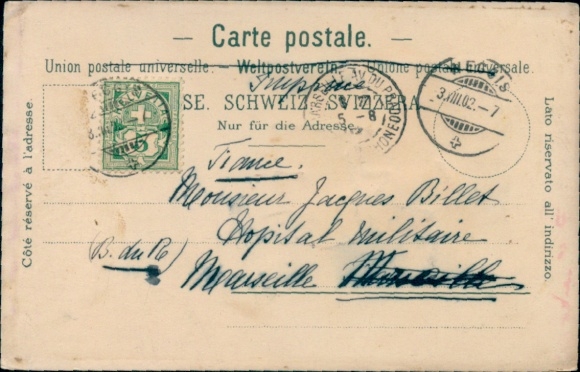 — Carte postale. —
Union postale universelle. — Weltpostverein. — Unione postale universale.
SUISSE. SCHWEIZ. SVIZZERA.
Nur für die Adresse.
5
3.VIII.02.–7
5 -8
France.
Monsieur Jacques Billet
Hopital Militaire
(B. du R)
Marseille
Côté réservé à l'adresse.
Lato riservato all' indirizzo.